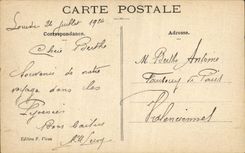 CARTE POSTALE
Correspondance.
Adresse.
Lourdes 24 Juillet 1924
Chère Berthe
Souvenir de notre
voyage dans les
Pyrénées
Bons baisers
M. Berthe Antoine
Faubourg de Paris
Valenciennes